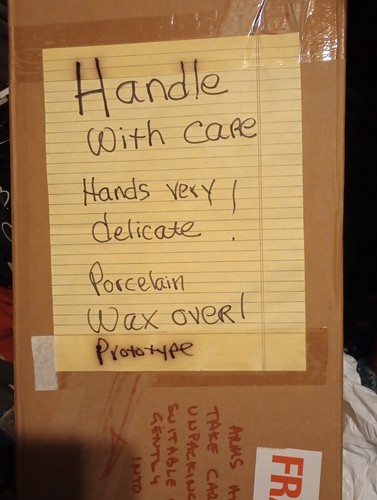 Handle
With care
Hands very !
delicate .
Porcelain
Wax over!
Prototype
ARMS
TAKE CAR
UNPACKING
SUITABLE
GENTLY
INTO
FR